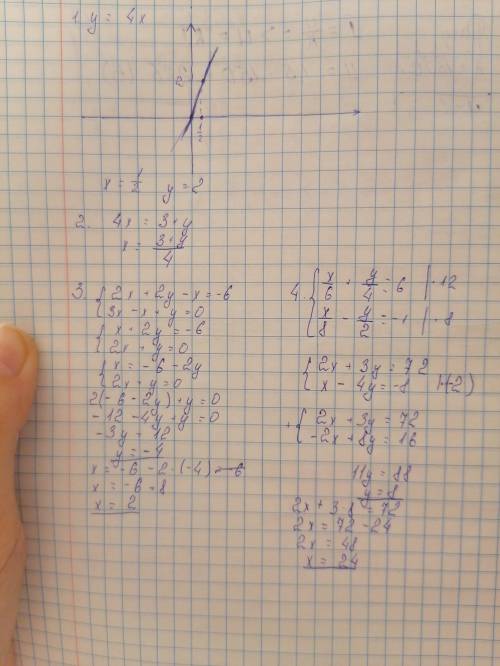 1. y = 4x
2
1/2
x = 1/2 y = 2
2. 4x = 3 + y
x = 3 + y / 4
3. { 2x + 2y - x = -6
3x - x + y = 0
{ x + 2y = -6
2x + y = 0
{ x = -6 - 2y
2x + y = 0
2(-6 - 2y) + y = 0
-12 - 4y + y = 0
-3y = 12
y = -4
x = -6 - 2 · (-4) = -6
x = -6 + 8
x = 2
4. { x/6 + y/4 = 6 | · 12
x/8 - y/2 = -1 | · 8
{ 2x + 3y = 72
x - 4y = -8 |(-2)
+ { 2x + 3y = 72
-2x + 8y = 16
11y = 88
y = 8
2x + 3 · 8 = 72
2x = 72 - 24
2x = 48
x = 24